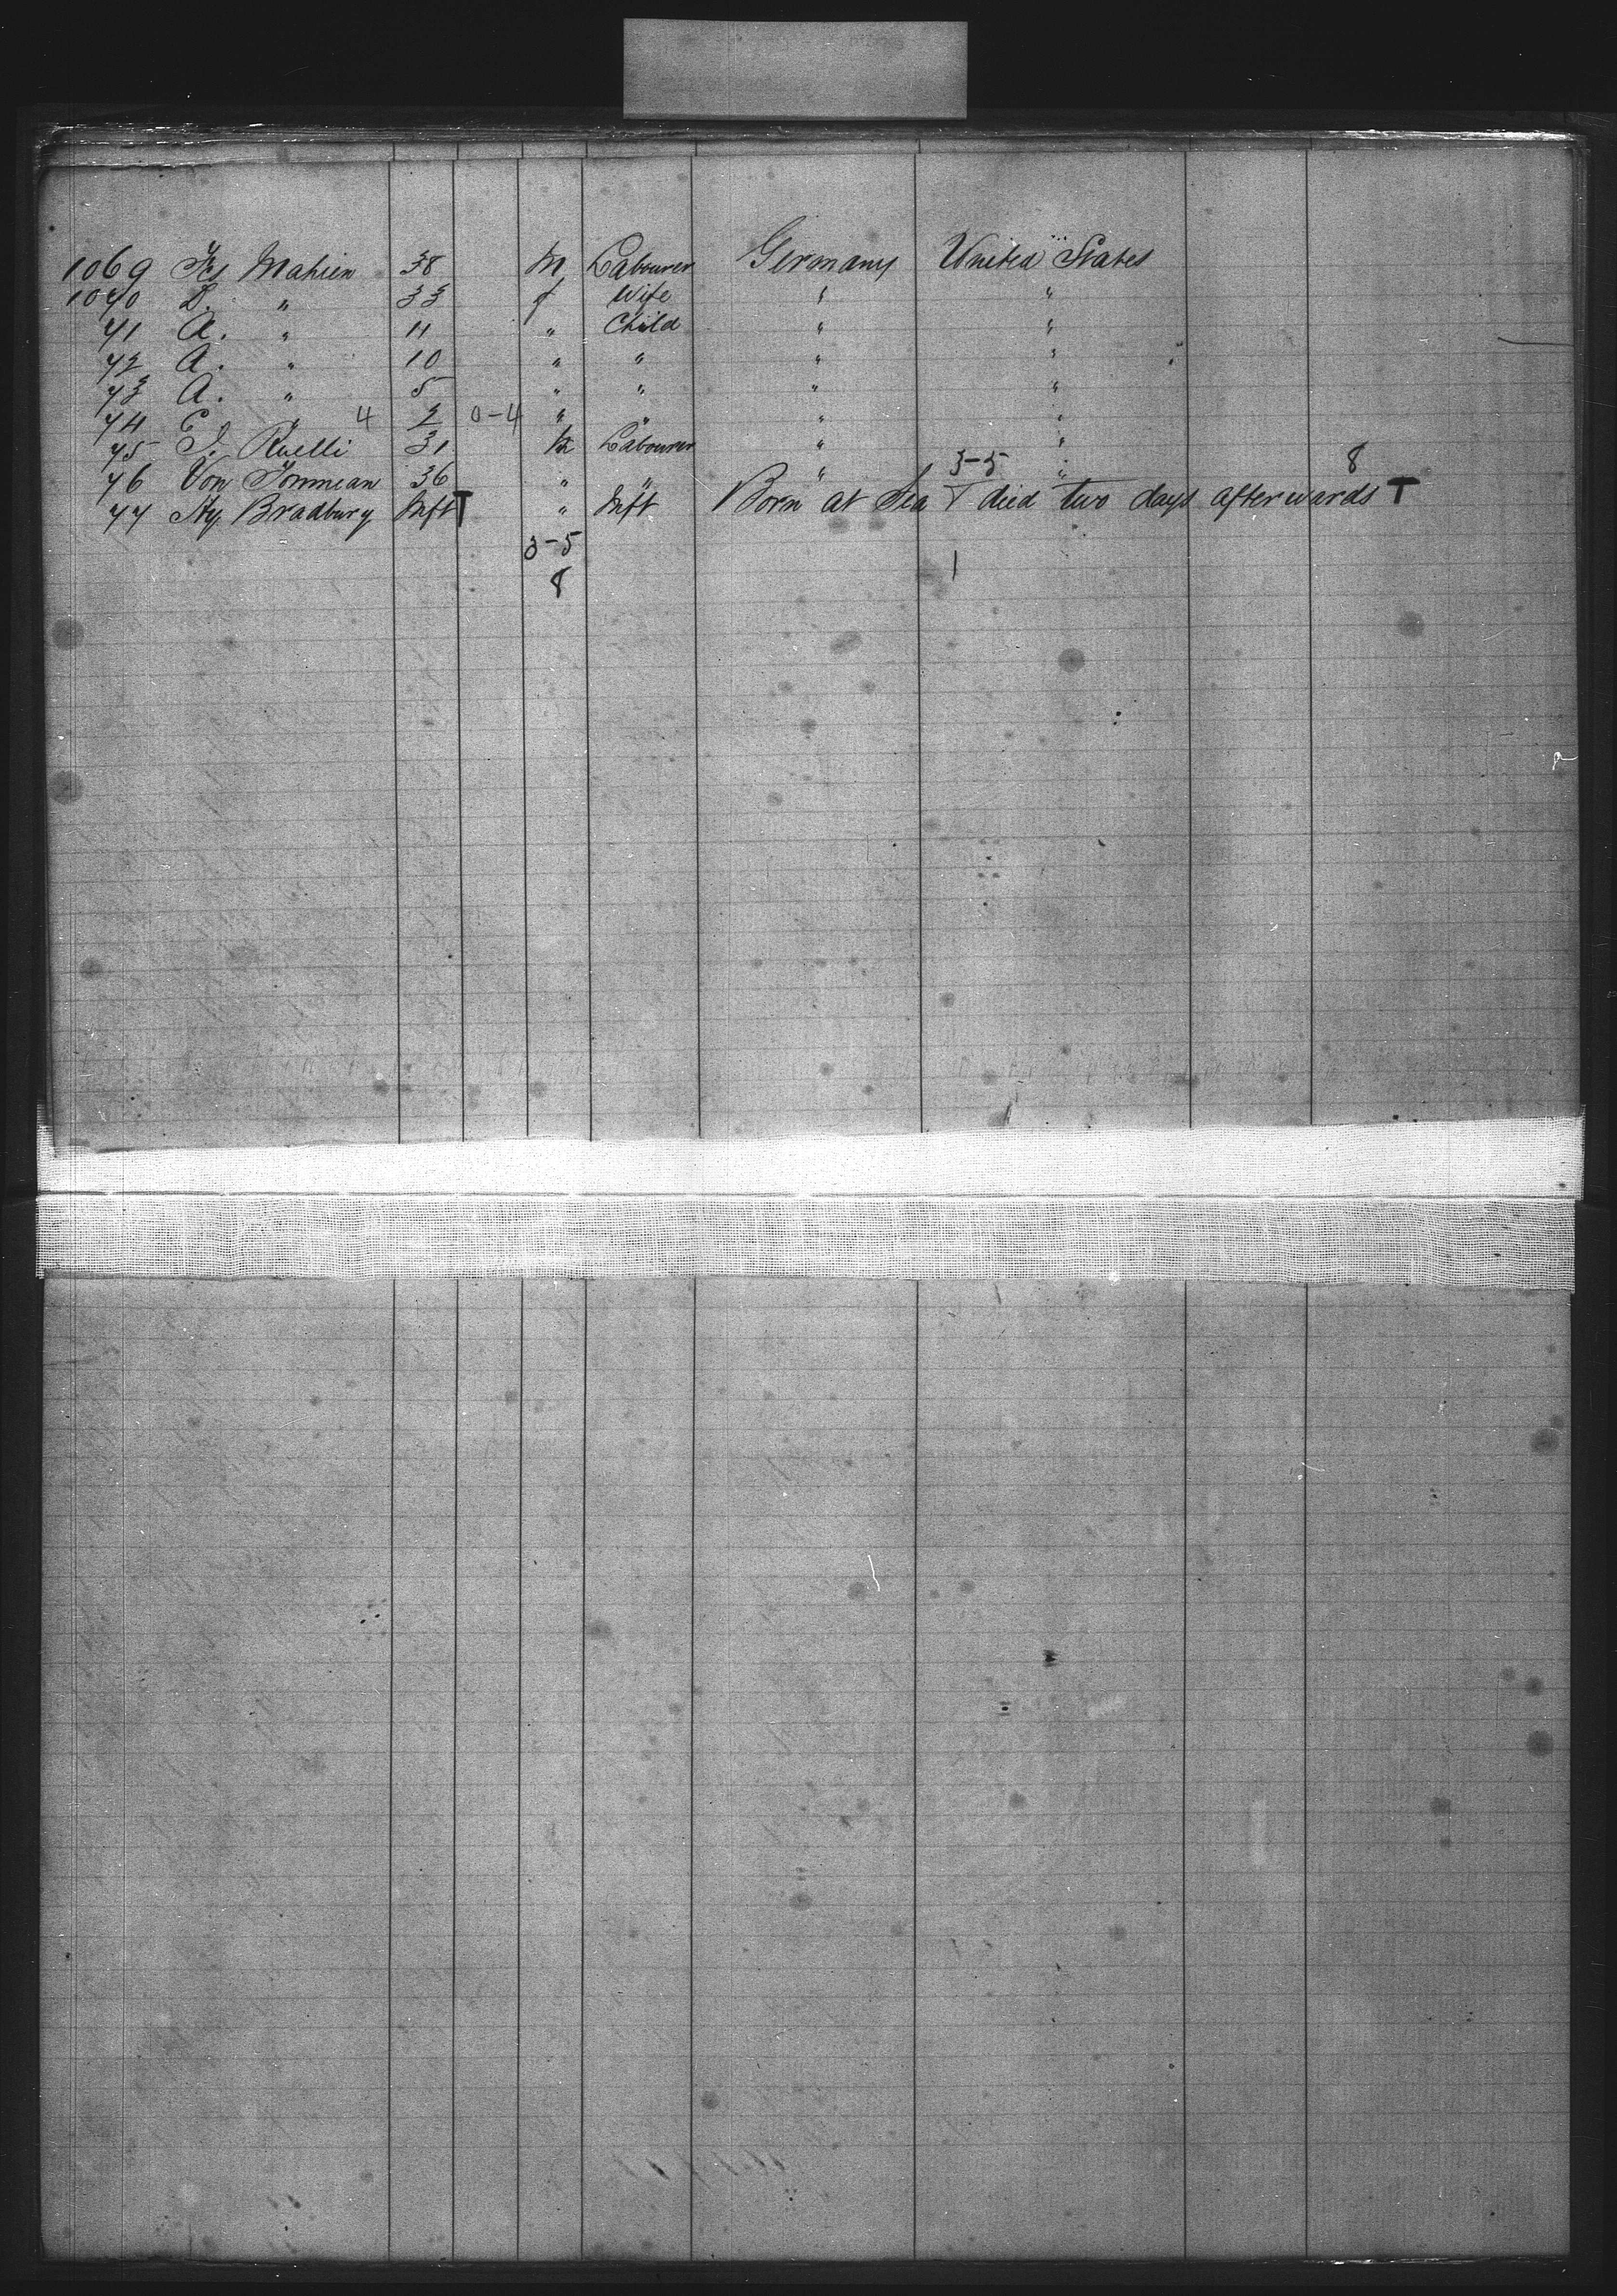 1069 Fs Mahien 38 M Labourer Germany United States
1070 D. " 33 f Wife " "
71 A. " 11 " Child " "
72 A. " 10 " " " "
73 A. " 5 " " " "
74 E " 4 2 0-4 " " " "
75 J. Ruelli 31 M Labourer " "
76 Von 36 " " " 3-5 " 8
77 Hy Bradbury Inft T " Inft Born at Sea & died two days afterwards T
3-5
8 1